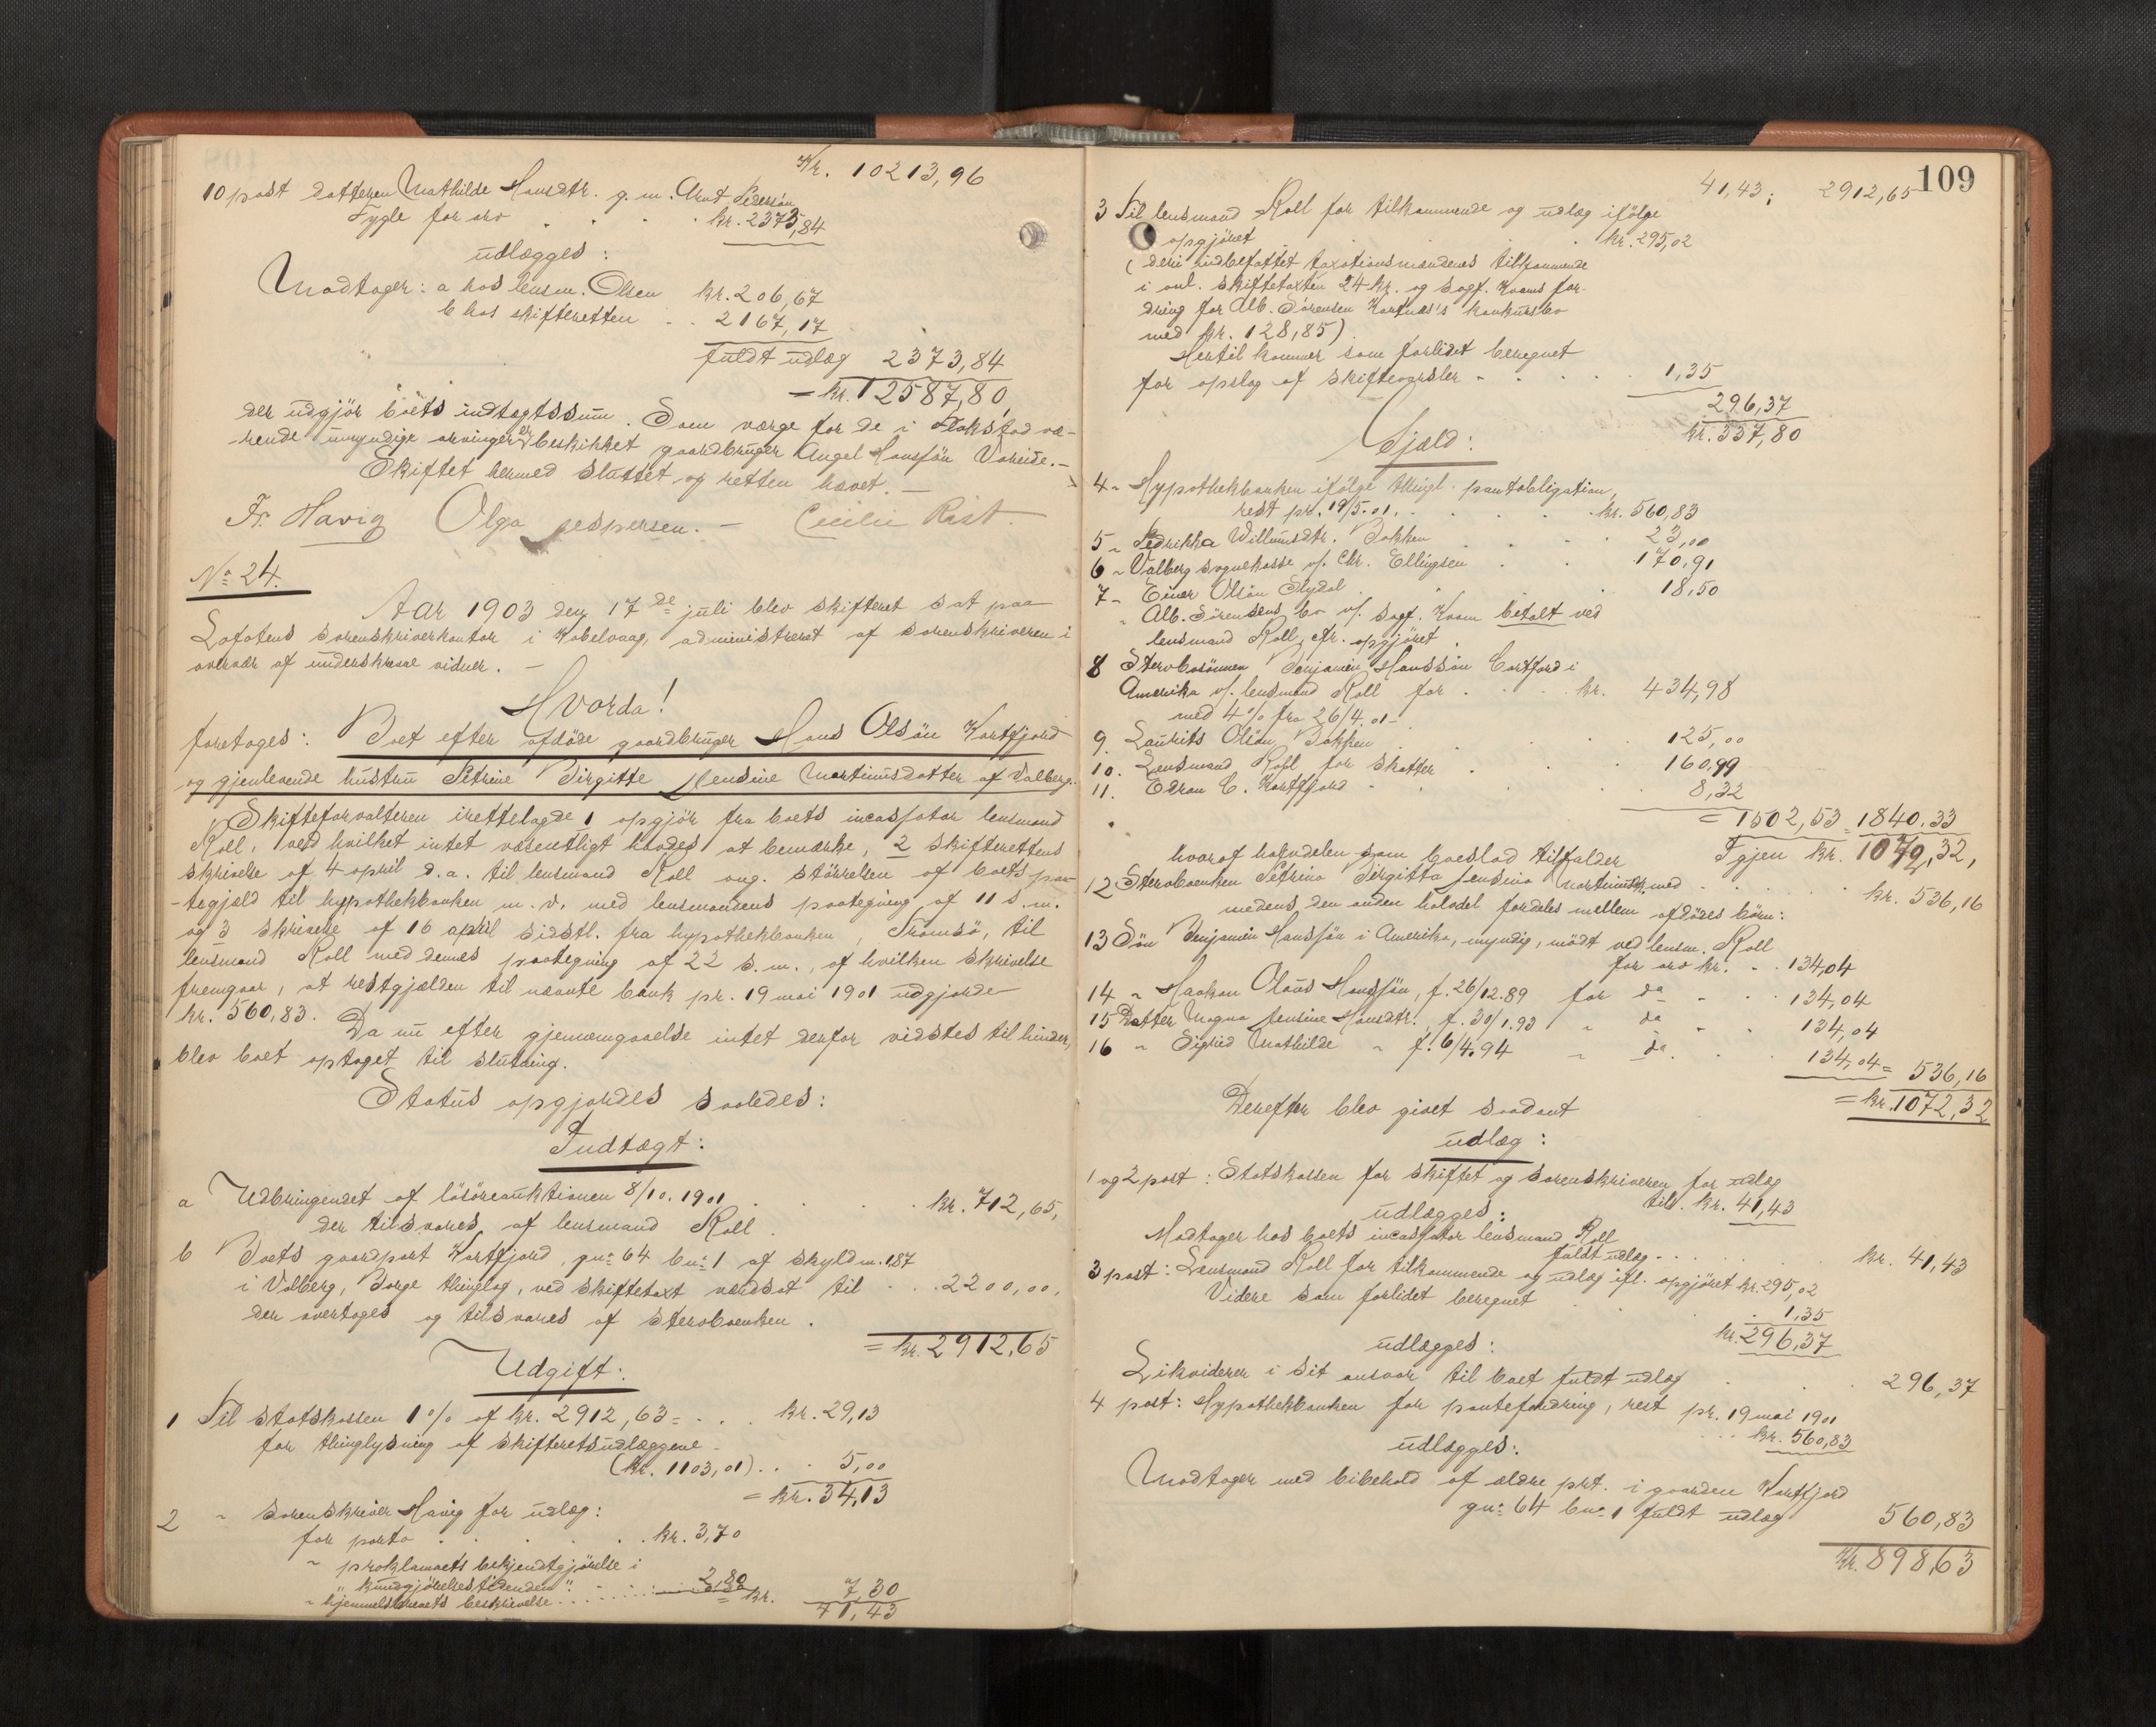 Kr. 10213,96
10 post datteren Mathilde Hansdtr. g. m. Arnt Pedersøn
Tygle for arv . . . . kr. 2373,84
udlægges:
Modtager: a hos lensm. Olsen kr. 206,67
b hos skifteretten - . 2167,17
fuldt udlæg 2373,84
= kr. 12587,80,
der udgjør boets indtægtssum. Som værge for de i Flakstad væ-
rende umyndige arvinger er beskikket gaardbruger Angel Hansøn Voreide.-
Skiftet hermed sluttet og retten hævet. -
Fr. Havig Olga Jespersen. - Cecilie Rist.
No 24.
Aar 1903 den 17de juli blev skifteret sat paa
Lofotens sorenskriverkontor i Kabelvaag, administreret af sorenskriveren i
overvær af underskrevne vidner. -
Hvorda!
foretoges: Boet efter afdøde gaardbruger Hans Olsøn Kortfjord
og gjenlevende hustru Petrine Birgitte Jensine Martinusdatter af Valberg.
Skifteforvalteren irettelagde 1 opgjør fra boets incassator lensmand
Roll, ved hvilket intet væsentligt havdes at bemærke, 2 skifterettens
skrivelse af 4 april d. a. til lensmand Roll ang. størrelsen af boets pan-
-tegjeld til hypothekbanken m. v. med lensmandens paategning af 11 s. m.
og 3 skrivelse af 16 april sidstl. fra hypothekbanken, Tromsø, til
lensmand Roll med dennes paategning af 22 s. m., af hvilken skrivelse
fremgaar, at restgjælden til nævnte bank pr. 19 mai 1901 udgjorde
kr. 560,83. Da nu efter gjennemgaaelse intet derfor vidstes til hinder,
blev boet optaget til slutning.
Status opgjordes saaledes:
Indtægt:
a Udbringendet af løsøreauktionen 8/10. 1901 . . . . kr. 712,65,
der tilsvares af lensmand Roll.
b Boets gaardpart Kortfjord, gno 64 bno 1 af skyld m. 1,87
i Valberg, Borge thinglag, ved skiftetaxt værdsat til . . . 2200,00,
der overtages og tilsvares af stervboenken.
= kr. 2912,65
Udgift:
1 Til statskassen 1 % af kr. 2912,63 = . . . kr. 29,13
for thinglysning af skifteretsudlæggene -
(kr. 1103,01) . . . 5,00
= kr. 34,13
2 " sorenskriver Havig for udlæg:
for porto . . . . . . kr. 3,70
" proklamaets bekjendtgjørelse i
"kundgjørelsestidenden" . . . . 2,80
" hjemmelsbrevets beskrivelse . . . . . . = kr. 7,30
41,43
109
41,43; 2912,65
3 Til lensmand Roll for tilkommende og udlæg ifølge
opgjøret . . . . kr. 295,02
(deri indbefattet taxationsmændenes tilkommende
i anl. skiftetaxten 24 kr. og sagf. Kvams for-
dring for Alb. Sørensen Kartnes's konkursbo
med kr. 128,85)
Hertil kommer som forlidet beregnet
for opslag af skiftevarsler - . . . . 1,35
296,37
kr. 337,80
Gjæld:
4 " Hypothekbanken ifølge thingl. pantobligation,
rest pr. 19/5.01. . . . . . kr. 560,83
5 " Fedrikka Willumsdtr. Bakken . . . 23,00
6 " Valberg sognekasse v/. Chr. Ellingsen . . 170,91
7 " Einar Olsøn Slydal . . . . 18,50
" Alb. Sørensens bo v/. sagf. Kvam betalt ved
lensmand Roll, cfr. opgjøret.
8 Stervbosønnen Benjamin Hanssøn Cortford i
Amerika v/. lensmand Roll for . . . kr. 434,98
med 4 % fra 26/4. 01 -
9. Laurits Olsøn Bakken . . . . 125,00
10. Lensmand Roll for skatter . . . 160,99
11. Edvan C. Kortfjord . . . . 8,32
= 1502,53 = 1840.33
Igjen kr. 1072,32,
hvoraf halvdelen som boeslod tilfalder
12 Stervboenken Petrine Birgitte Jensine Martinusdtr. med . . . . . kr. 536,16
medens den anden halvdel fordeles mellem afdødes børn:
13 Søn Benjamin Hansøn i Amerika, myndig, mødt ved lensm. Roll
for arv kr. . . 134,04
14 " Haakon Olaus Hansøn, f. 26/12.89 for do . . . 134,04
15 Datter Magna Jensine Hansdtr., f. 30/1.93 " do . . 134,04
16 " Sigrid Mathilde " f. 6/4.94 " do . . . 134,04 = 536,16
= kr. 1072,32
Derefter blev givet saadant
udlæg:
1 og 2 post: Statskassen for skiftet og sorenskriveren for udlæg
tils. kr. 41,43
udlægges:
Modtager hos boets incassator lensmand Roll
fuldt udlæg . . . . kr. 41,43
3 post: Lensmand Roll for tilkommende og udlæg ifl. opgjøret kr. 295,02
Videre som forlidet beregnet . . . . 1,35
kr. 296,37
udlægges:
Likviderer i sit ansvar til boet fuldt udlæg . . . 296,37
4 post: Hypothekbanken for pantefordring, rest pr. 19 mai 1901
. . . kr. 560,83
udlægges:
Modtager med bibehold af ældre prt. i gaarden Kortfjord
gno 64 bno 1 fuldt udlæg 560,83
Kr. 898,63